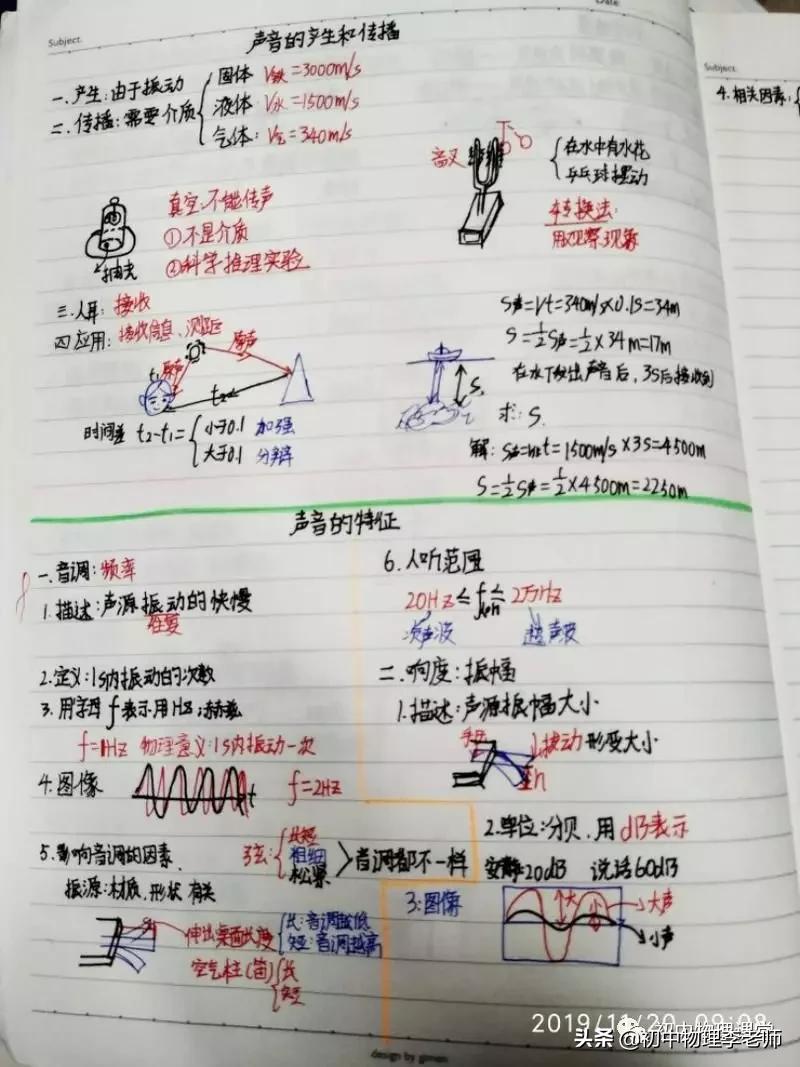 Subject.
Date
声音的产生和传播
一.产生:由于振动
二.传播:需要介质
固体 V铁=3000m/s
液体 V水=1500m/s
气体:V气=340m/s
音叉
在水中有水花
乒乓球摆动
转换法:
用观察现象
抽走
真空:不能传声
①不是介质
②科学推理实验
三.人耳:接收
四.应用:接收信息、测距
原声
原声
t₁
t₂
时间差 t₂-t₁=
小于0.1 加强
大于0.1 分辨
S声=Vt=340m/s×0.1S=34m
S=½S声=½×34m=17m
在水下发出声音后,3S后接收到
求:S.
S.
解:S声=V水t=1500m/s×3S=4500m
S=½S声=½×4500m=2250m
声音的特征
一.音调:频率
1.描述:声源振动的快慢
往复
2.定义:1s内振动的次数
3.用字母f表示.用HZ;赫兹
f=1HZ 物理意义:1S内振动一次
4.图像
t
f=2HZ
5.影响音调的因素.
振源:材质,形状 有关
弦:
长短
粗细
松紧
音调都不一样
伸出桌面长度
长:音调越低
短:音调越高
空气柱(笛)
长
短
6.人听范围
20HZ≤f≤2万HZ
次声波
超声波
二.响度:振幅
1.描述:声源振幅大小
拨动 形变大小
2.单位:分贝.用dB表示
安静20dB 说话60dB
3:图像
大
小
大声
小声
Subject.
4.相关因素:
2019/11/20 09:08
初中物理理学
头条 @初中物理李老师
design by gimen